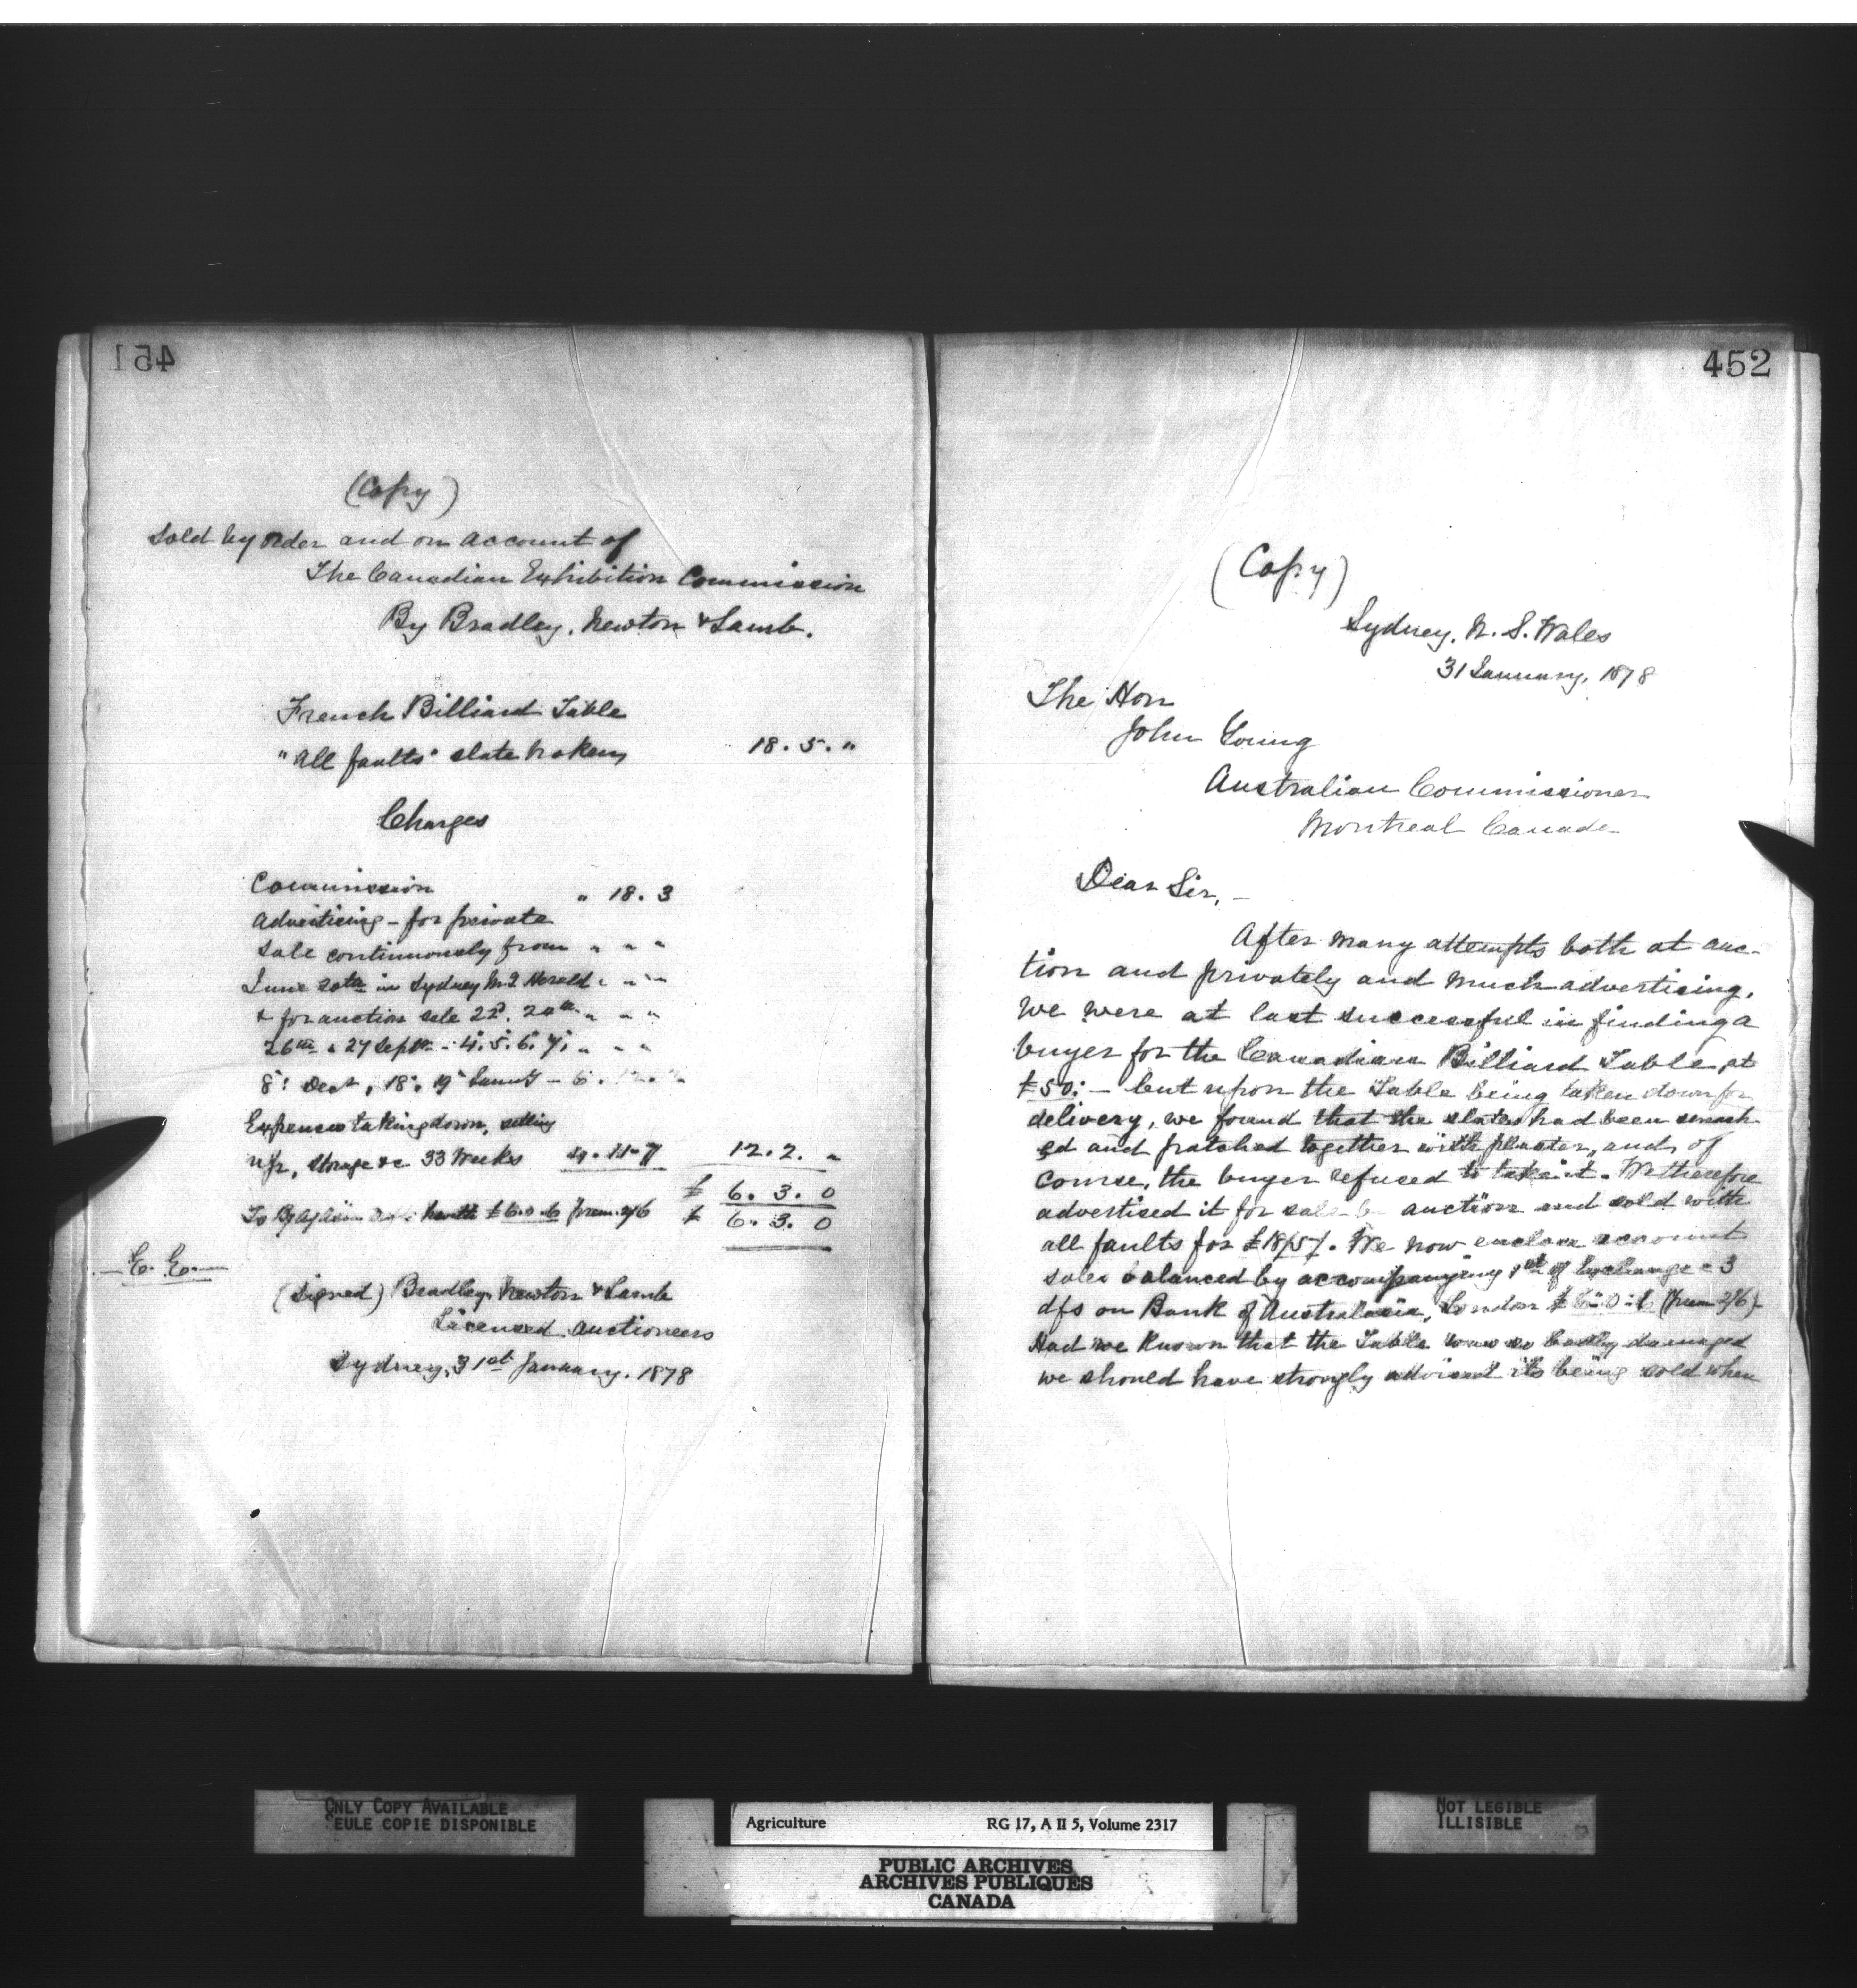 451
(Copy)
Sold by order and on account of
The Canadian Exhibition Commission
By Bradley, Newton & Lamb.
French Billiard Table
"All faults" slate broken, 18. 5. "
Charges
Commission " 18. 3
Advertising - for private
sale continuously from " " "
June 20th in Sydney M. Herald " " "
& for auction sale 22d. 24th " " "
26th & 27 Septr - 4. 5. 6. 7. " " "
8. Dect, 18. 19 - 6.
Expenses taking down, setting
up, storage &c 33 Weeks 4. 11. 7 12. 2. "
£ 6. 3. 0
To £6.0.6 prem. 2/6 £ 6. 3. 0
E. E.
(Signed) Bradley, Newton & Lamb
Licensed Auctioneers
Sydney, 31st January. 1878
452
(Copy)
Sydney, N. S. Wales
31 January, 1878
The Hon
John Young
Australian Commissioner
Montreal Canada
Dear Sir, -
After many attempts both at auc-
tion and privately and much advertising,
we were at last successful in finding a
buyer for the Canadian Billiard Table, at
£50: - but upon the Table being taken down for
delivery, we found that the slates had been smash
ed and patched together with plaster, and, of
course, the buyer refused to take it. We therefore
advertised it for sale by auction and sold with
all faults for £18/5/. We now enclose account
sales balanced by accompanying 1st of Exchange - 3
d/s on Bank of Australasia, London £6:0:6 (prem 2/6) -
Had we known that the Table was so badly damaged
we should have strongly advised its being sold when
ONLY COPY AVAILABLE
SEULE COPIE DISPONIBLE
Agriculture RG 17, A II 5, Volume 2317
PUBLIC ARCHIVES
ARCHIVES PUBLIQUES
CANADA
NOT LEGIBLE
ILLISIBLE